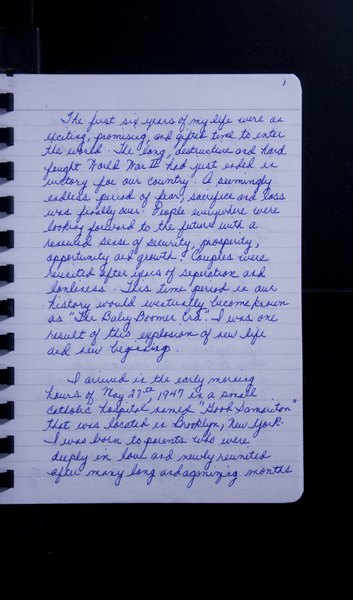 1
The first six years of my life were an
exciting, promising, and gifted time to enter
the world. The long, destructive and hard
fought World War II had just ended in
victory for our country. A seemingly
endless period of fear, sacrifice and loss
was finally over. People everywhere were
looking forward to the future with a
renewed sense of security, prosperity,
opportunity and growth. Couples were
reunited after years of seperation and
lonliness. This time period in our
history would eventually become known
as "The Baby Boomer Era". I was one
result of this explosion of new life
and new beginning.
I arrived in the early morning
hours of May 27th, 1947 in a small
catholic hospital named "Good Samariton"
that was located in Brooklyn, New York.
I was born to parents who were
deeply in love and newly reunited
after many long and agonizing months